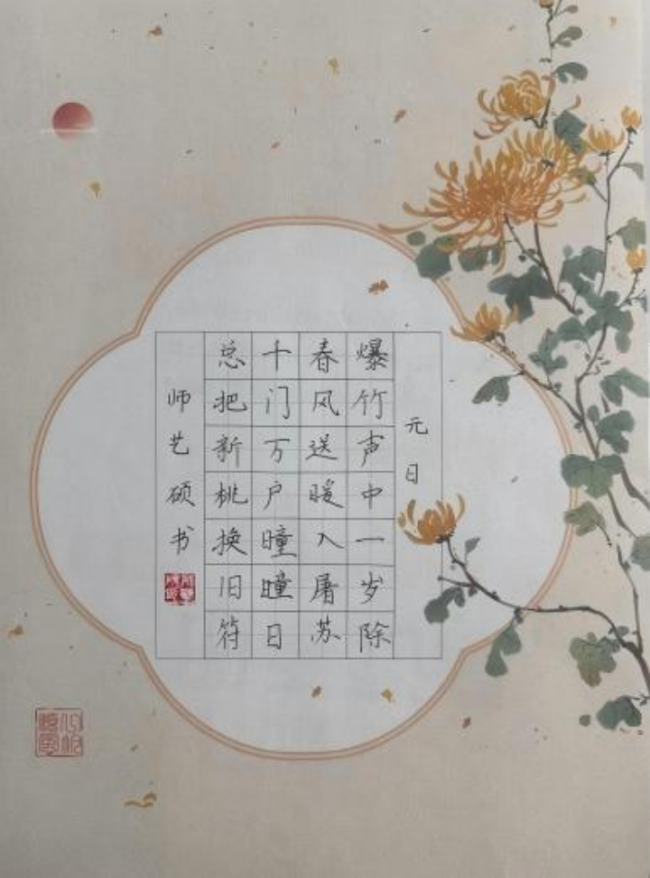 元日
爆竹声中一岁除
春风送暖入屠苏
千门万户曈曈日
总把新桃换旧符
师艺硕书